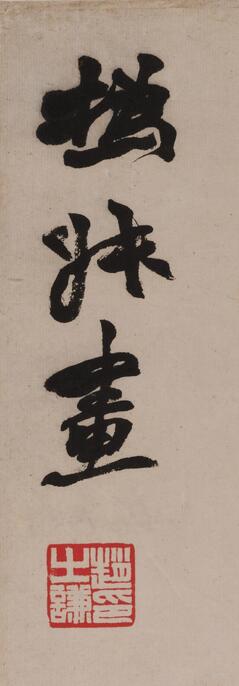 撝叔畫
趙之謙印